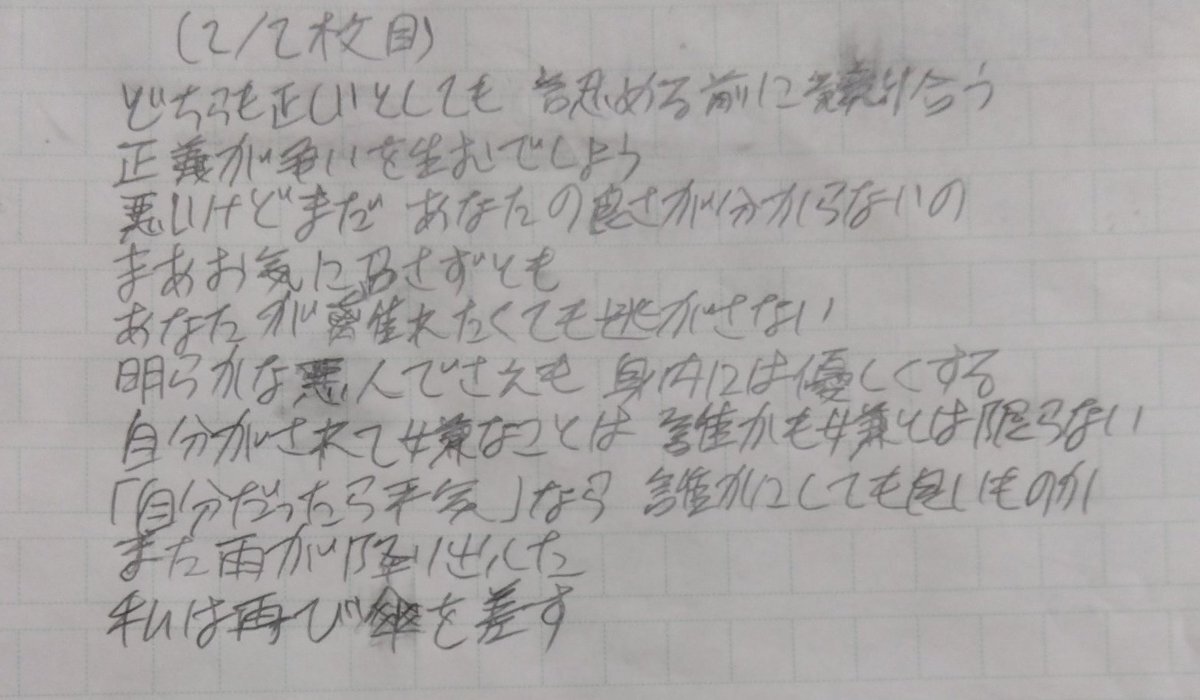 (2/2枚目)
どちらも正しいとしても 認める前に競り合う
正義が争いを生むでしょう
悪いけどまだ あなたの良さが分からないの
まあお気に召さずとも
あなたが離れたくても逃がさない
明らかな悪人でさえも 身内には優しくする
自分がされて嫌なことは 誰かも嫌とは限らない
「自分だったら平気」なら 誰かにしても良いものか
また雨が降り出した
私は再び傘を差す